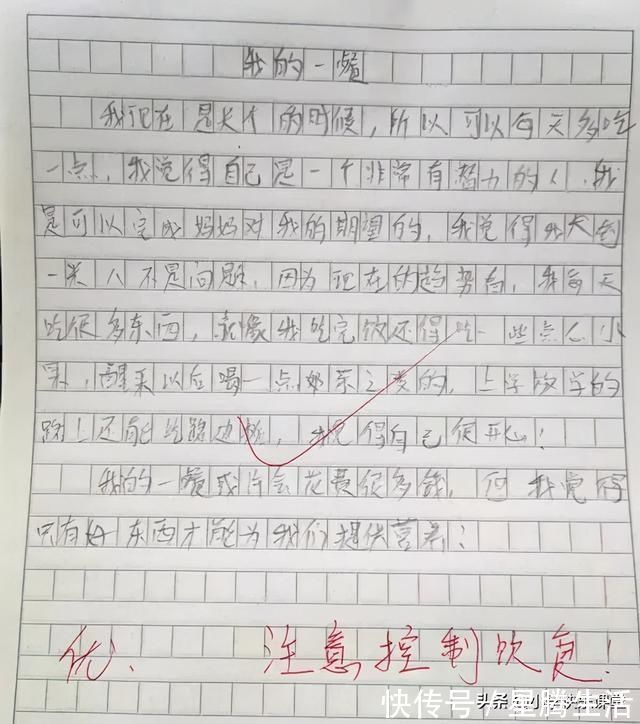 我的一餐
我现在是长个的时候，所以可以每天多吃
一点，我觉得自己是一个非常有智力的人，我
是可以完成妈妈对我的期望的，我觉得我长到
一米八不是问题，因为现在的趋势高，我每天
吃很多东西，就像我吃完饭还得吃一些点心水
果，醒来以后喝一点奶茶之类的，上学放学的
路上还能吃路边，我觉得自己很开心！
我的一餐或许会花费很多钱，但我觉得
只有好东西才能为我们提供营养！
优、 注意控制饮食！
快传号/星腾生活
头条